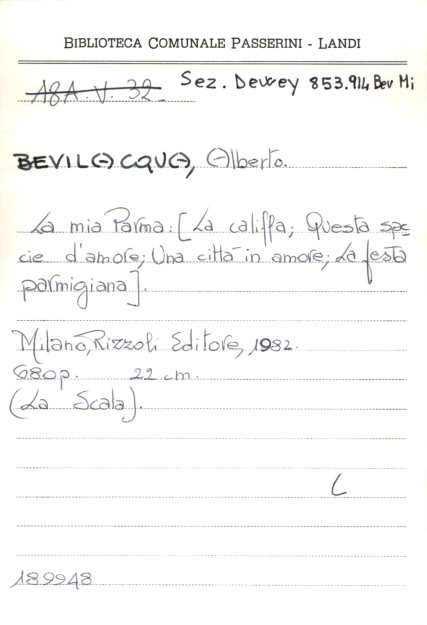 BIBLIOTECA COMUNALE PASSERINI - LANDI
A8A. V. 32 Sez. Dewey 853.914 Bev Mi
BEVILACQUA, Alberto.
La mia Parma: [La califfa; Questa spe-
cie d'amore; Una città in amore; La festa
parmigiana].
Milano, Rizzoli Editore, 1982.
680p. 22 cm.
(La Scala).
L
189948